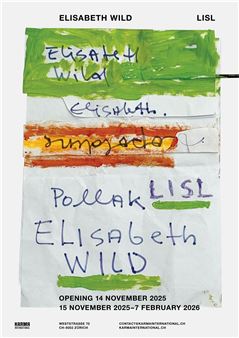 ELISABETH WILD LISL
Elisabeth
Wild
Elisabeth.
Pollak LISL
ELISABETH
WILD
OPENING 14 NOVEMBER 2025
15 NOVEMBER 2025–7 FEBRUARY 2026
KARMA WESTSTRASSE 70 CONTACT@KARMAINTERNATIONAL.CH
INTERNATIONAL CH-8003 ZÜRICH KARMAINTERNATIONAL.CH